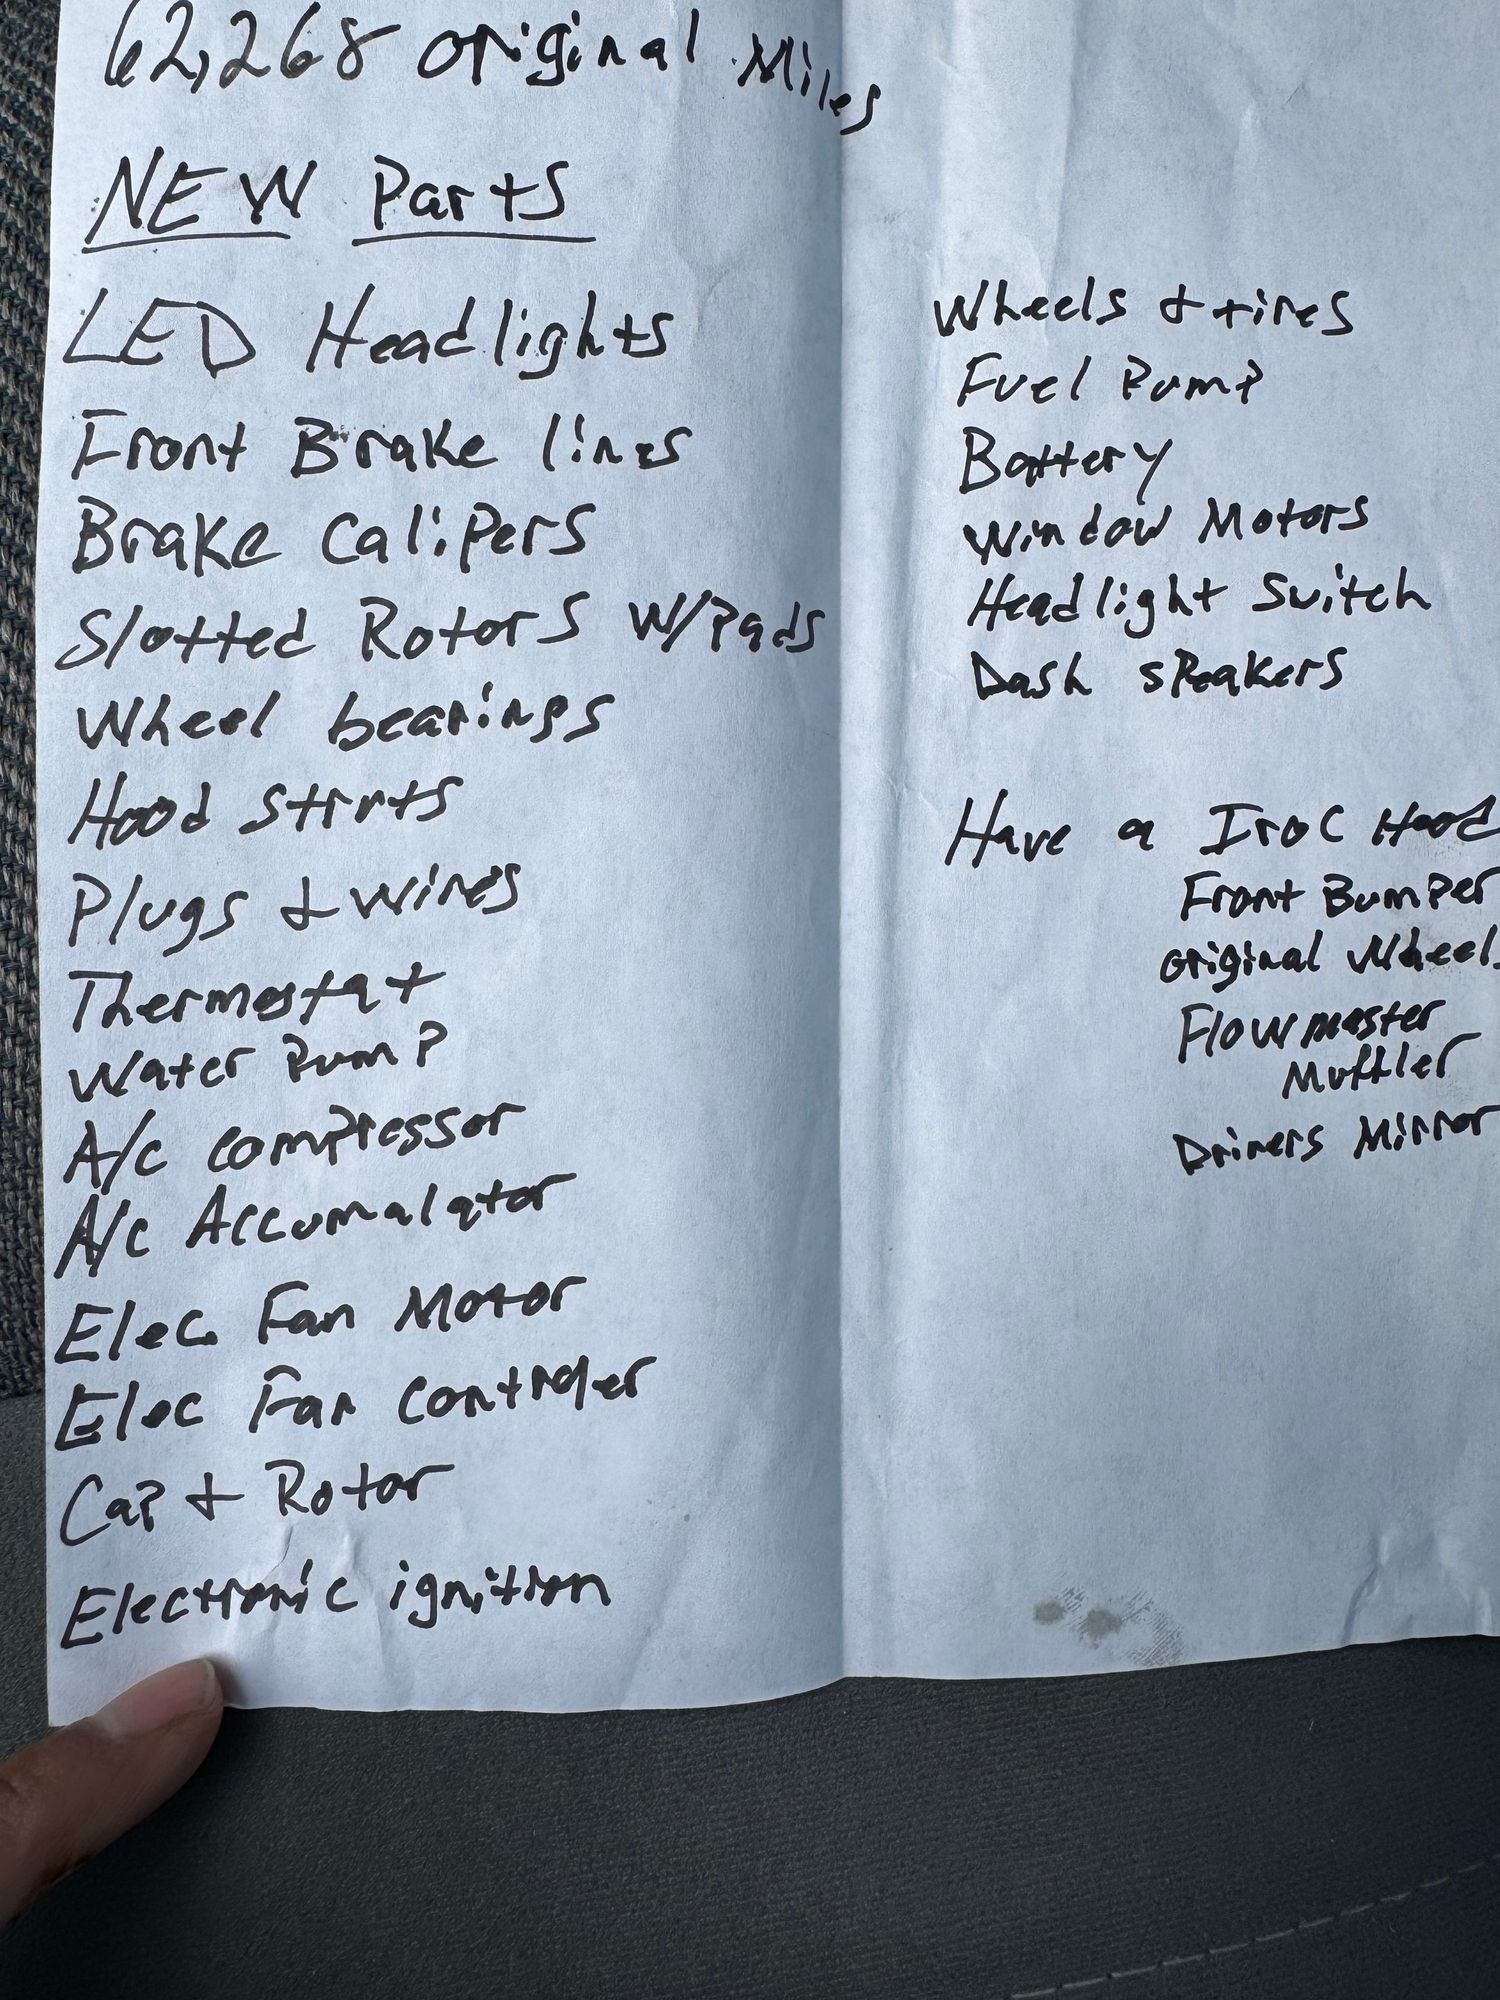 62,268 original Miles
NEW Parts
LED Headlights
Front Brake lines
Brake Calipers
Slotted Rotors W/Pads
Wheel bearings
Hood struts
Plugs & wires
Thermostat
Water Pump
A/c compressor
A/c Accumalator
Elec. Fan Motor
Elec Fan controler
Cap & Rotor
Electronic ignition
Wheels & tires
Fuel Pump
Battery
Window Motors
Headlight Switch
Dash speakers
Have a IROC Hood
Front Bumper
original Wheels
Flowmaster
Muffler
Drivers Mirror